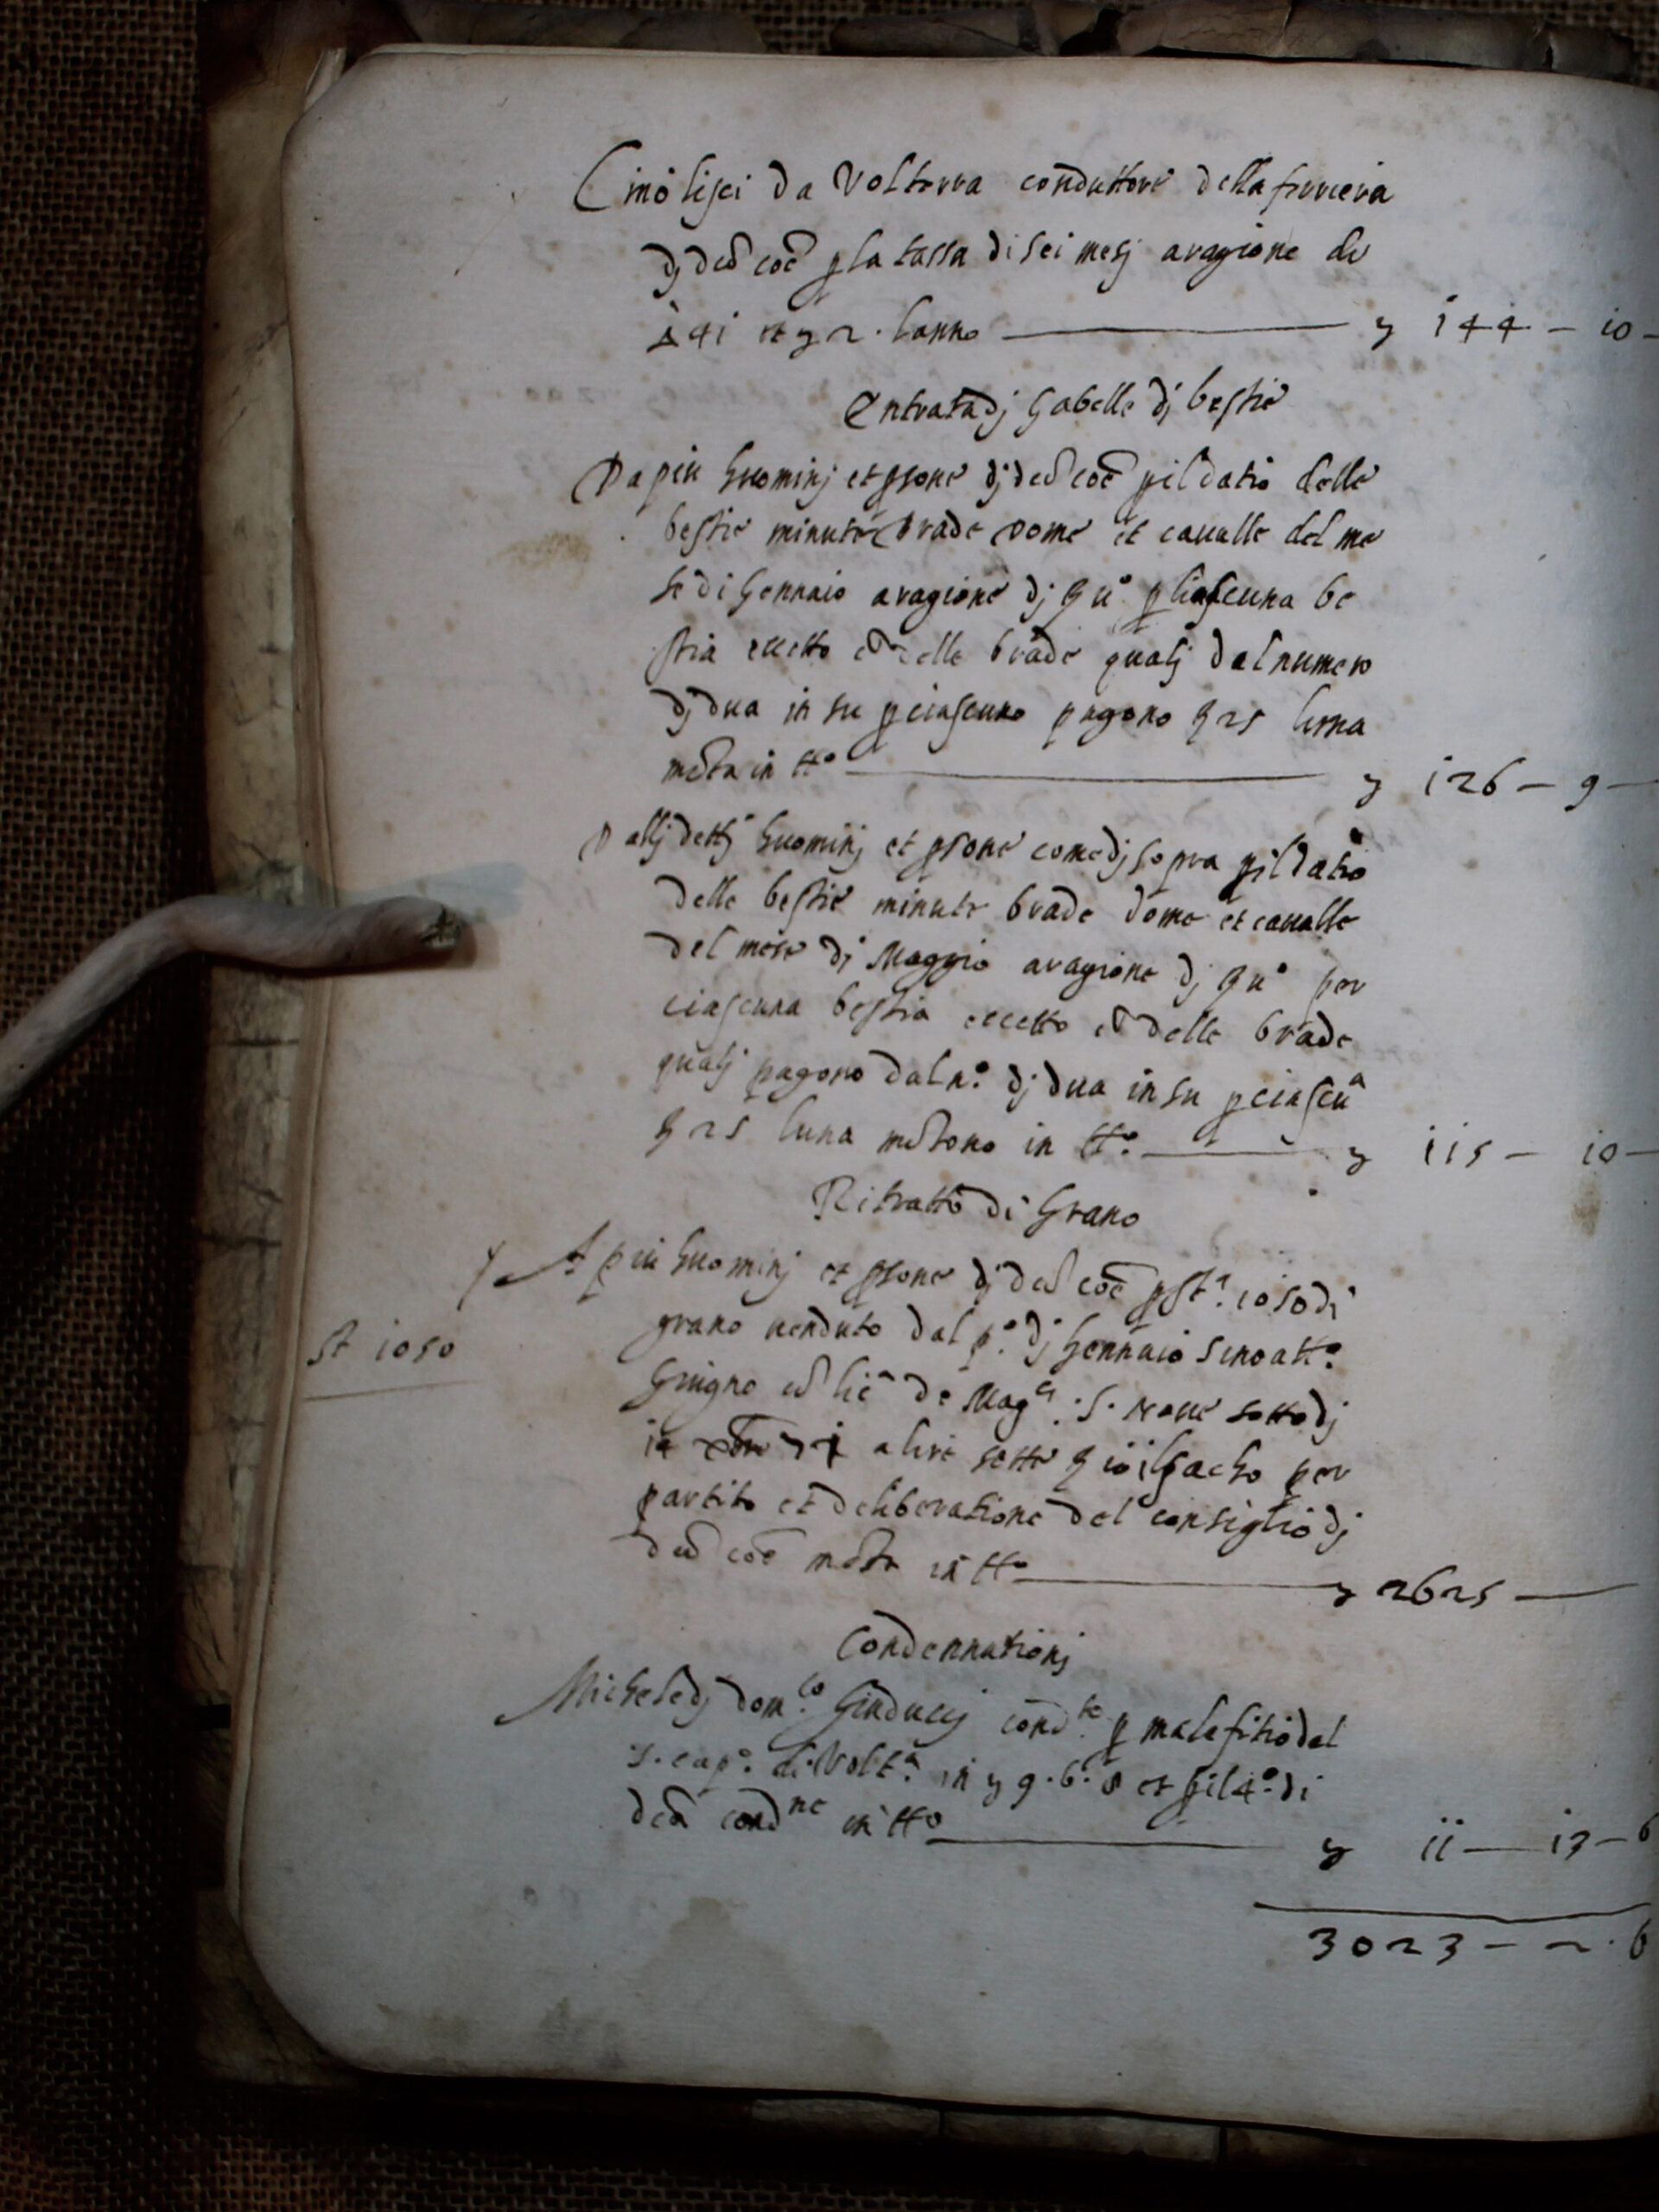 Cino lisci da Volterra conduttore della ferriera
dj dcō coē p la tassa di sei mesj aragione di
Δ 41 et y 2 . lanno — y 144 — 10 —
Entrata dj Gabelle dj bestie
Da piu huominj et psone dj dcō coē p il datio delle
bestie minute brade dome et cavalle del me
se di Gennaio aragione dj p ciascuna be
stia eccetto delle brade qualj dal numero
dj dua in su p ciascuno pagono β 25 luna
mōta in tto — y 126 — 9 —
Dallj dettj huominj et psone come dj sopra p il datio
delle bestie minute brade dome et cavalle
del mese dj Maggio aragione dj per
ciascuna bestia eccetto delle brade
qualj pagono dal n.o dj dua in su p ciascua
β 25 luna mōtono in tto. — y 115 — 10 —
Ritratto di Grano
A piu huominj et psone dj dcō coē p sta. 1050 di
st 1050
grano venduto dal p.o dj Gennaio sino a tto.
Giugno cō licā de Magci .S. Nove sotto dj
a lire sette β il sacho per
partito et deliberatione del consiglio dj
dcō coē mōta in tto — y 2625 —
Condennationj
Michele dj dom.co Ginduccj condto. p malefitio del
S. cap.o di Volta. in y 9 . 6 . 8 et p il 4.o di
dcā condne in tto — y 11 — 13 — 6
3023 — 2 . 6